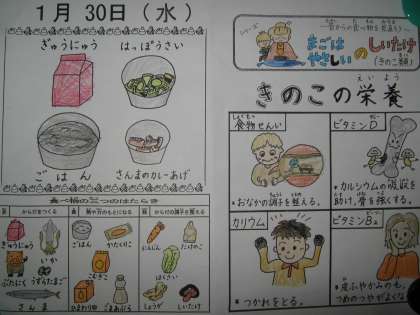 1月 30日(水)
ぎゅうにゅう
はっぽうさい
ごはん
さんまのカレーあげ
食べ物の三つのはたらき
からだをつくる
熱や力のもとになる
からだの調子を整える
ぎゅうにゅう
いか
ぶたにく
うずらたまご
さんま
ごはん
かたくりこ
こむぎこ
ごまあぶら
にんじん
たけのこ
はくさい
しょうが
しいたけ
シリーズ
まごは
やさしいの
しいたけ
(きのこ類)
きのこの栄養
えいよう
食物せんい
しょくもつ
・おなかの調子を整える。
ビタミンD
・カルシウムの吸収を
助け、骨を強くする。
カリウム
・つかれをとる。
ビタミンB₂
・皮ふやかみのも、
つめのつやがよくな